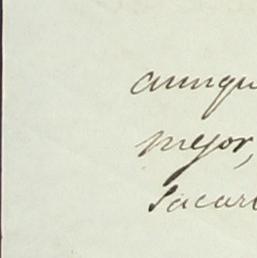 aunqu
mejor,
sacar